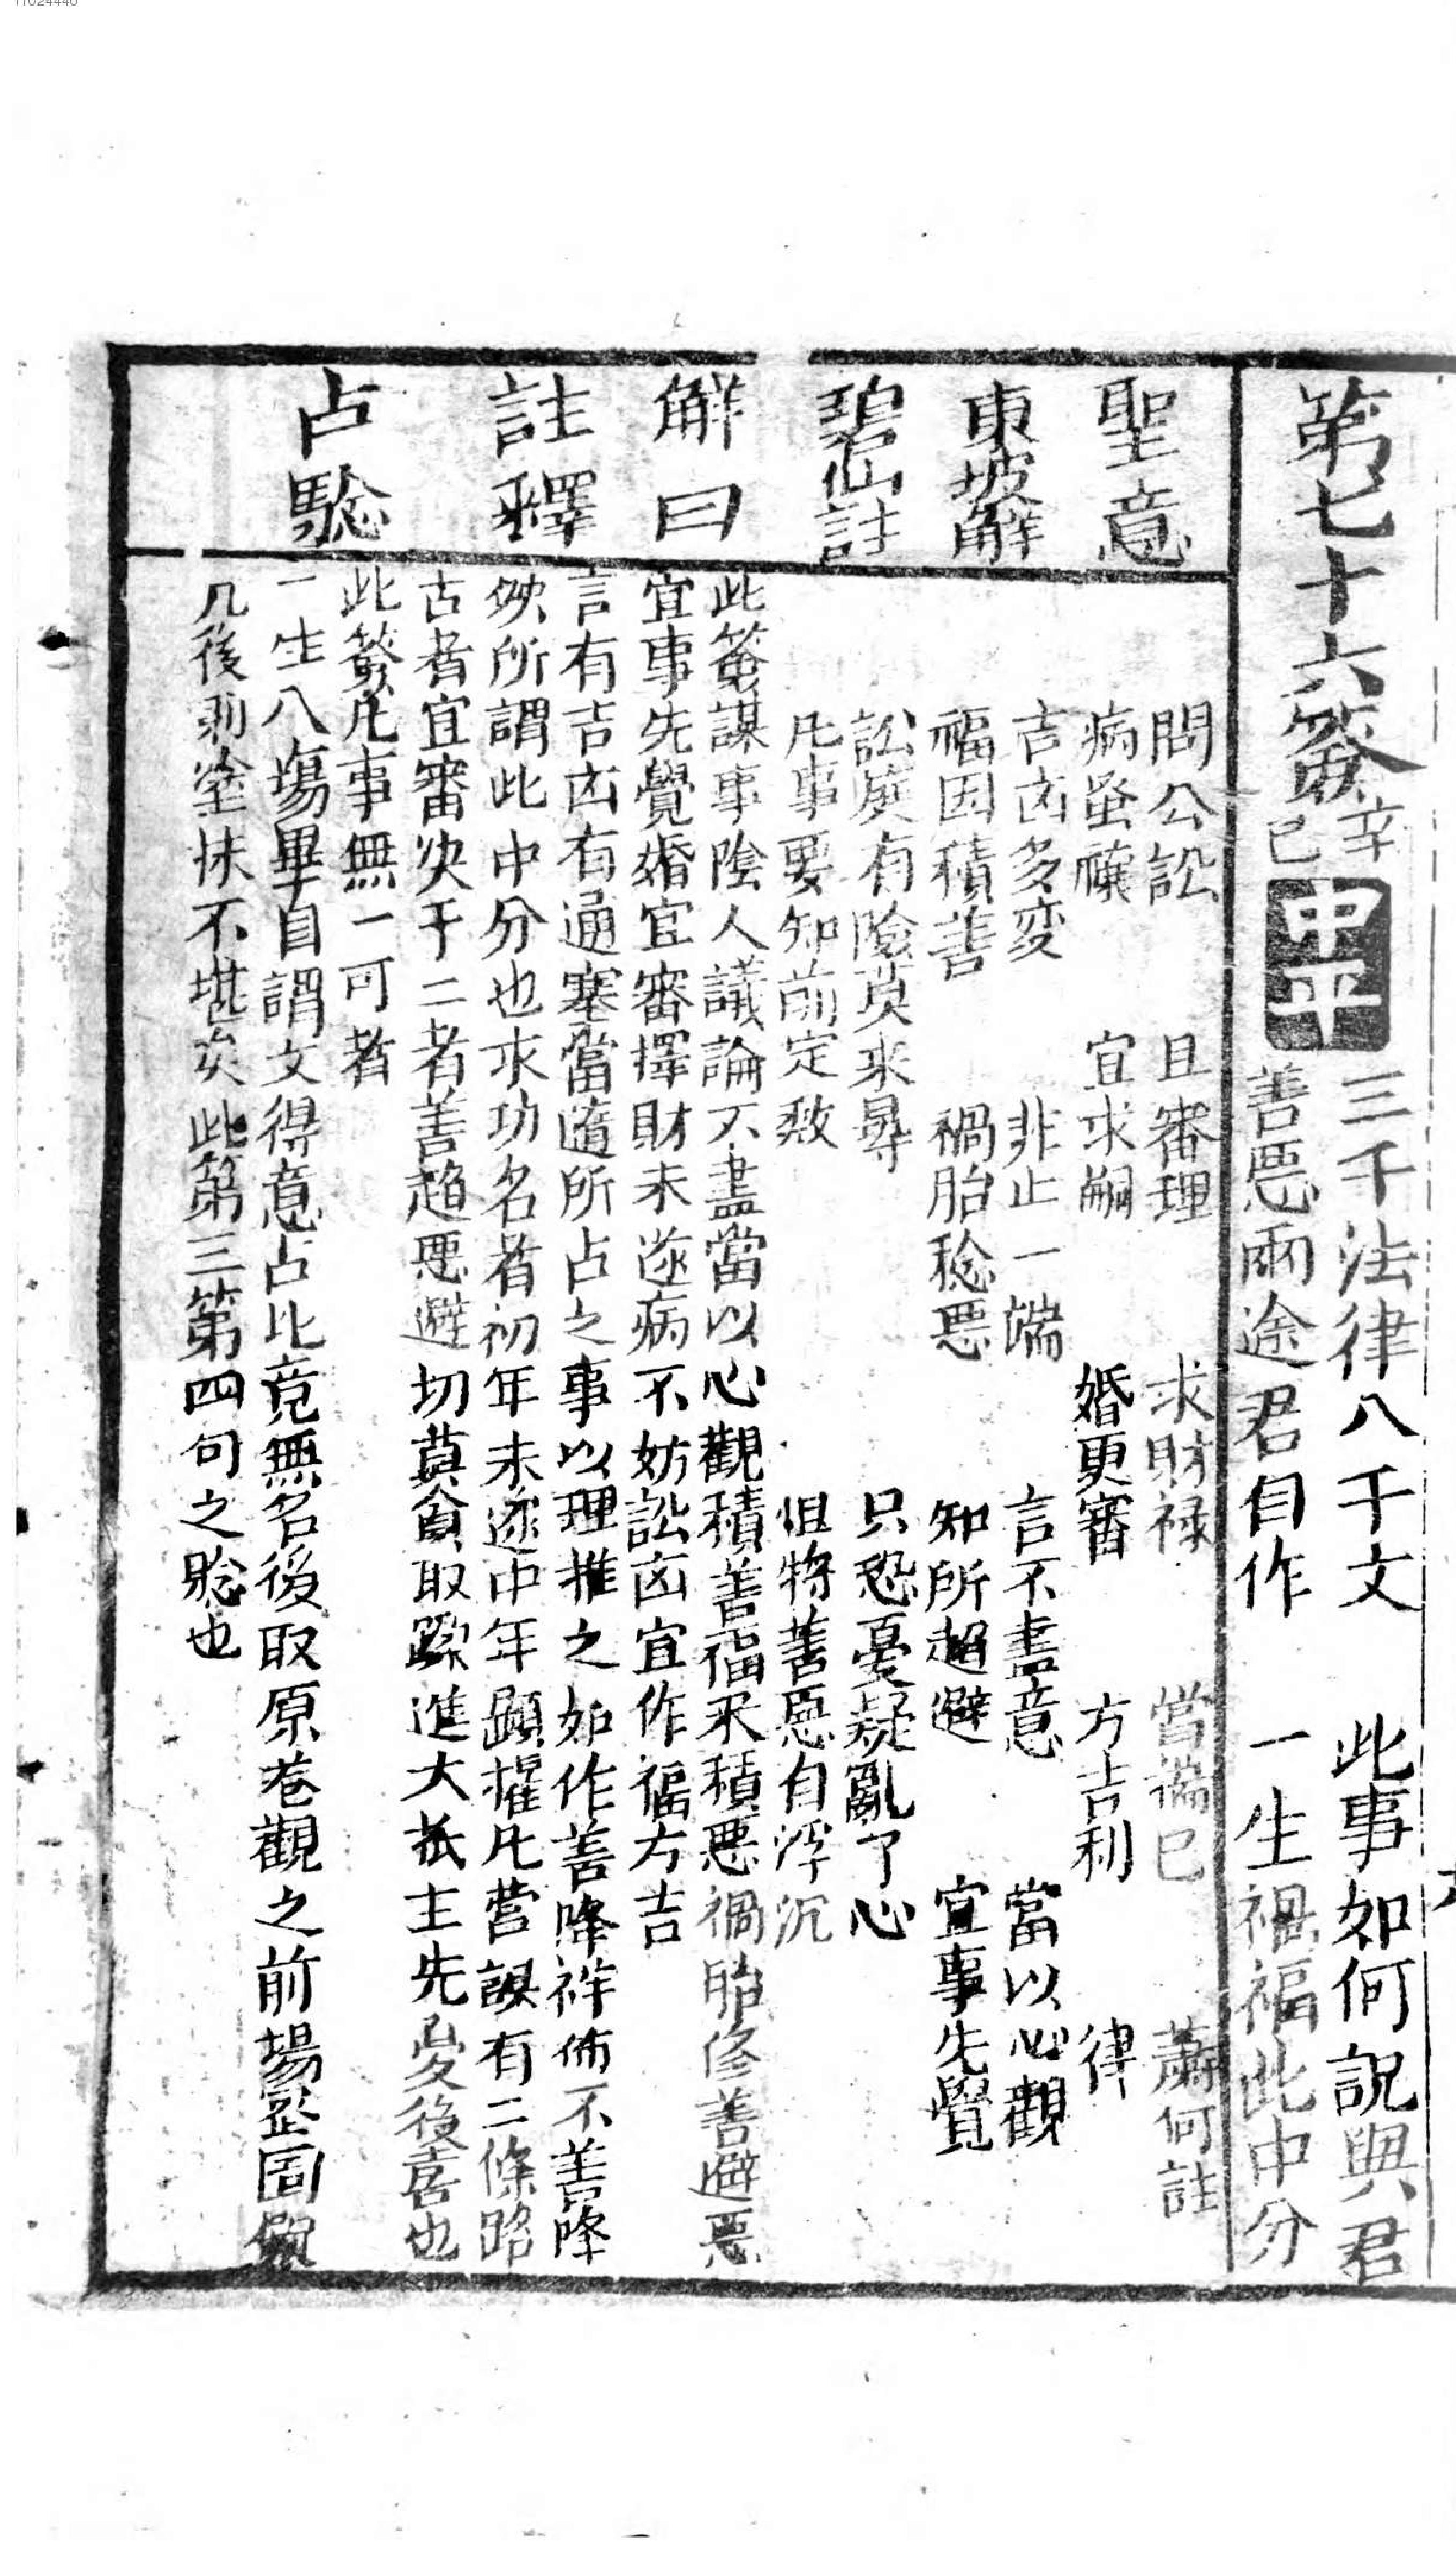 11024440
第七十六簽 辛己 中平 三千法律八千文 此事如何說與君
善惡兩途君自作 一生禍福此中分
聖意
問公訟 且審理 求財祿 當揣己 蕭何註
病蚤禳 宜求嗣 婚更審 方吉利 律
東坡解
吉凶多変 非止一端 言不盡意 當以心觀
福因積善 禍胎稔惡 知所趨避 宜事先覺
碧仙註
訟庭有險莫來尋 只恐憂疑亂了心
凡事要知前定数 但將善惡自浮沉
解曰
此簽謀事陰人議論不盡當以心觀積善福來積惡禍胎修善避惡
宜事先覺婚宜審擇財未遂病不妨訟凶宜作福方吉
註釋
言有吉凶有通塞當隨所占之事以理推之如作善降祥作不善降
殃所謂此中分也求功名者初年未遂中年顯擢凡營謀有二條路
古者宜審決于二者善趨惡避切莫貪取躁進大抵主先憂後喜也
此簽凡事無一可者
占驗
一生八場畢自謂文得意占此竟無名後取原卷觀之前場盔固
几後則塗抹不堪矣 此第三第四句之驗也